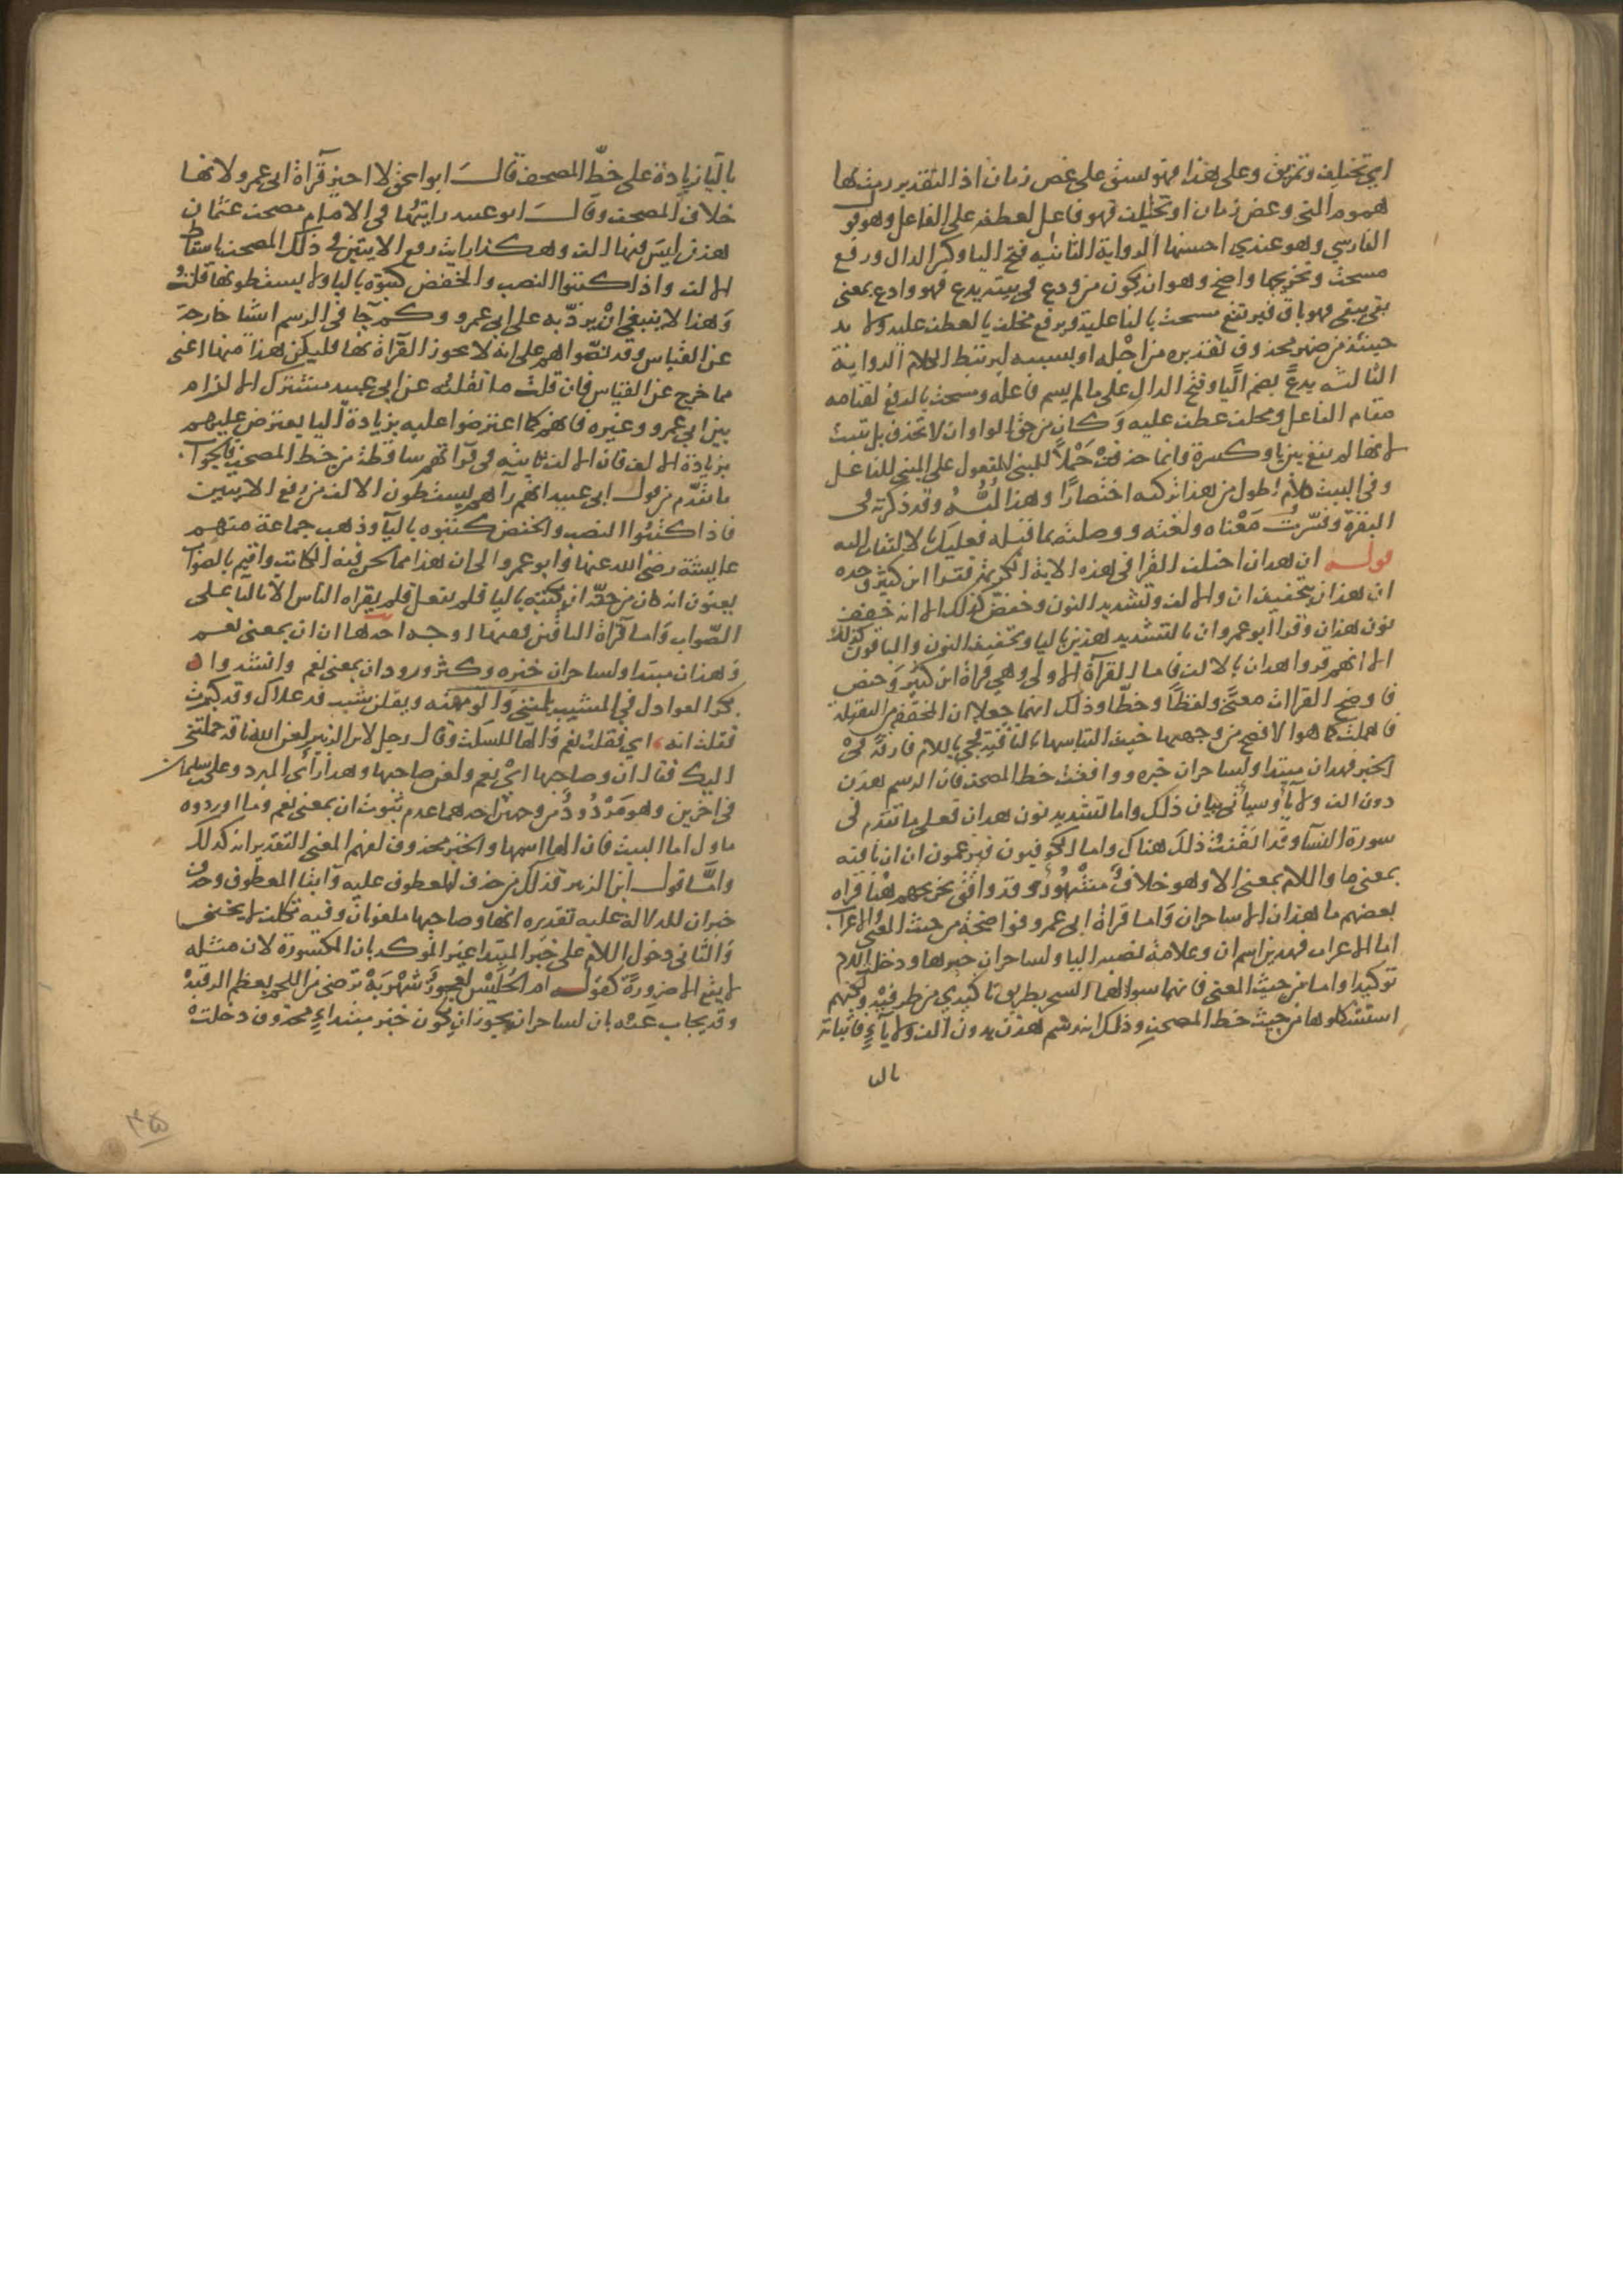 اي تختلف وتمزق وعلى هذا فهو نسق على عض زمان اذ التقدير رمت بها
هموم المنى وعض زمان او مختلف فهو فاعل لعطفه على الفاعل وهو قو
الفارسي وهو عندي احسنها الرواية الثانية فتح اليا وكسر الدال ورفع
مسحت وتخريجها واضح وهو ان يكون من ودع في بيته يدع فهو وادع بمعنى
بقي يبقى فهو باق فيرتفع مسحت بالفاعلية ويرفع مجلف بالعطف عليه ولا بد
حينئذ من ضمير محذوف تقديره من اجله او بسببه ليرتبط الكلام الرواية
الثالثه يدع بضم اليا وفتح الدال على ما لم يسم فاعله ومسحت بالرفع لقيامه
مقام الفاعل ومجلف عطف عليه وكان من حق الواو ان لا تحذف بل تثبت
لانها لم تقع بين يا وكسرة وانما حذفت حملا للمبنى للمفعول على المبني للفاعل
وفي البيت كلام اطول من هذا تركته اختصارا وهذا لبه وقد ذكرته في
البقرة وفسرت معناه ولغته ووصلته بما قبله فعليك بالالتفات اليه
قوله ان هذان اختلف القرا في هذه الاية الكريمة فقرا ابن كثير وحده
ان هذان بتخفيف ان والالف وتشديد النون وحفص كذلك الا انه خفف
نون هذان وقرا ابو عمرو ان بالتشديد هذين باليا وتخفيف النون والباقون كذلك
الا انهم قروا هذان بالالف فاما القرآة الاولى وهي قراة ابن كثير وحفص
فاوضح القرات معنى ولفظا وخطا وذلك انهما جعلا ان المخففة من الثقيلة
فاهملت كما هو الافصح من وجهيها خيف التباسها بالنافية فجي باللام فارقة في
الخبر فهذان مبتدا ولساحران خبره ووافقت خط المصحف فان الرسم هذن
دون الف ولا يآ وسيأتي بيان ذلك واما لتشديد نون هذان فعلى ما تقدم في
سورة النسآ وقد اتقنت ذلك هناك واما الكوفيون فيزعمون ان ان نافيه
بمعنى ما واللام بمعنى الا وهو خلاف مشهور وقد وافق تخريجهم هنا قراه
بعضهم ما هذان الا ساحران واما قراة ابي عمرو فواضحة من حيث المعنى والاعراب.
اما الاعراب فهذين اسم ان وعلامة نصبه اليا ولساحران خبرها ودخلت اللام
توكيدا واما من حيث المعنى فانهما سوا لهما السحر بطريق تاكيدي من طرفيه ولكنهم
استشكلوها من حيث خط المصحف وذلك انه رسم هذن بدون الف ولا يآء فاثباته
باليا
باليا زيادة على خط المصحف قال ابو اسحق لا اجيز قرآة ابي عمرو لانها
خلاف المصحف وقال ابو عبيد رايتها في الامام مصحف عثمان
هذن ليس فيها الف وهكذا رايت رفع الاثنين في ذلك المصحف باسقاط
الالف واذا كتبوا النصب والخفض كتبوه باليا ولا يسقطونها قلت
وهذا لا ينبغي ان يرد به على ابي عمرو وكم جآ في الرسم اشيا خارجة
عن القياس وقد نصوا هم على انه لا يجوز القرآة بها فليكن هذا منها اعني
مما خرج عن القياس فان قلت ما نقلته عن ابي عبيد مشترك الالزام
بين ابي عمرو وغيره فانهم كما اعترضوا عليه بزيادة اليا يعترض عليهم
بزيادة الالف فان الالف ثابته في قراتهم ساقطة من خط المصحف فالجواب.
ما تقدم من قول ابي عبيد انهم رآهم يسقطون الالف من رفع الاثنين
فاذا كتبوا النصب والخفض كتبوه باليآ وذهب جماعة منهم
عايشة رضي الله عنها وابو عمرو الى ان هذا مما لحن فيه الكاتب واقيم بالصواب
يعنون انه كان من حقه ان يكتبه باليا فلم يفعل فلم يقراه الناس الا باليا على
الصواب واما قرآة الباقين ففيها اوجه احدها ان ان بمعنى نعم
وهذان مبتدا ولساحران خبره وكثر ورود ان بمعنى نعم وانشدوا
بكر العواذل في المشيب يلمنني والومهنه ويقلن شيب قد علاك وقد كبرت
فقلت انه اي فقلت نعم والها للسكت وقال رجل لابن الزبير لعن الله ناقة حملتني
اليك فقال ان وصاحبها اي نعم ولعن صاحبها وهذا رأي المبرد وعلي بن سليمان
في اخرين وهو مردود من وجهين احدهما عدم ثبوت ان بمعنى نعم وما اوردوه
ماول اما البيت فان الها اسمها والخبر محذوف لفهم المعنى التقدير انه كذلك
واما قول ابن الزبير فذلك من حذف المعطوف عليه وابقا المعطوف وحذف
خبر ان للدلالة عليه تقديره انها وصاحبها ملعونان وفيه تكلف لا يخفى
والثاني دخول اللام على خبر المبتدا غير الموكد بان المكسورة لان مثله
لا يقع الا ضرورة كقوله ام الحليس لعجوز شهربة ترضى من اللحم بعظم الرقبة
وقد يجاب عنه بان لساحران يجوز ان يكون خبر مبتداء محذوف دخلت